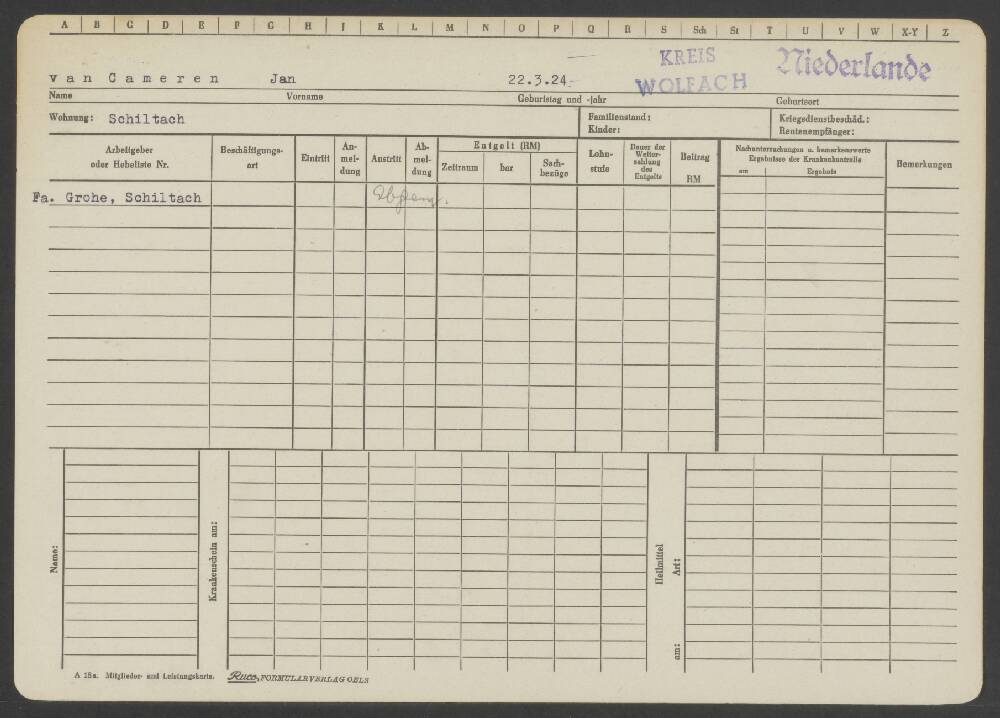 A B C D E F G H J K L M N O P Q R S Sch St T U V W X-Y Z
KREIS WOLFACH
Niederlande
van Cameren Jan 22.3.24.
Name Vorname Geburtstag und -jahr Geburtsort
Wohnung: Schiltach
Familienstand:
Kinder:
Kriegsdienstbeschäd.:
Rentenempfänger:
Arbeitgeber oder Hebeliste Nr.
Beschäftigungs-art
Eintritt
An-mel-dung
Austritt
Ab-mel-dung
Entgelt (RM)
Zeitraum
bar
Sach-bezüge
Lohn-stufe
Dauer der Weiter-zahlung des Entgelts
Beitrag RM
Nachuntersuchungen u. bemerkenswerte Ergebnisse der Krankenkontrolle
am
Ergebnis
Bemerkungen
Fa. Grohe, Schiltach
Name:
Krankenschein am:
Heilmittel
Art:
am:
A 18a. Mitglieder- und Leistungskarte.
Ruco, FORMULARVERLAG OELS